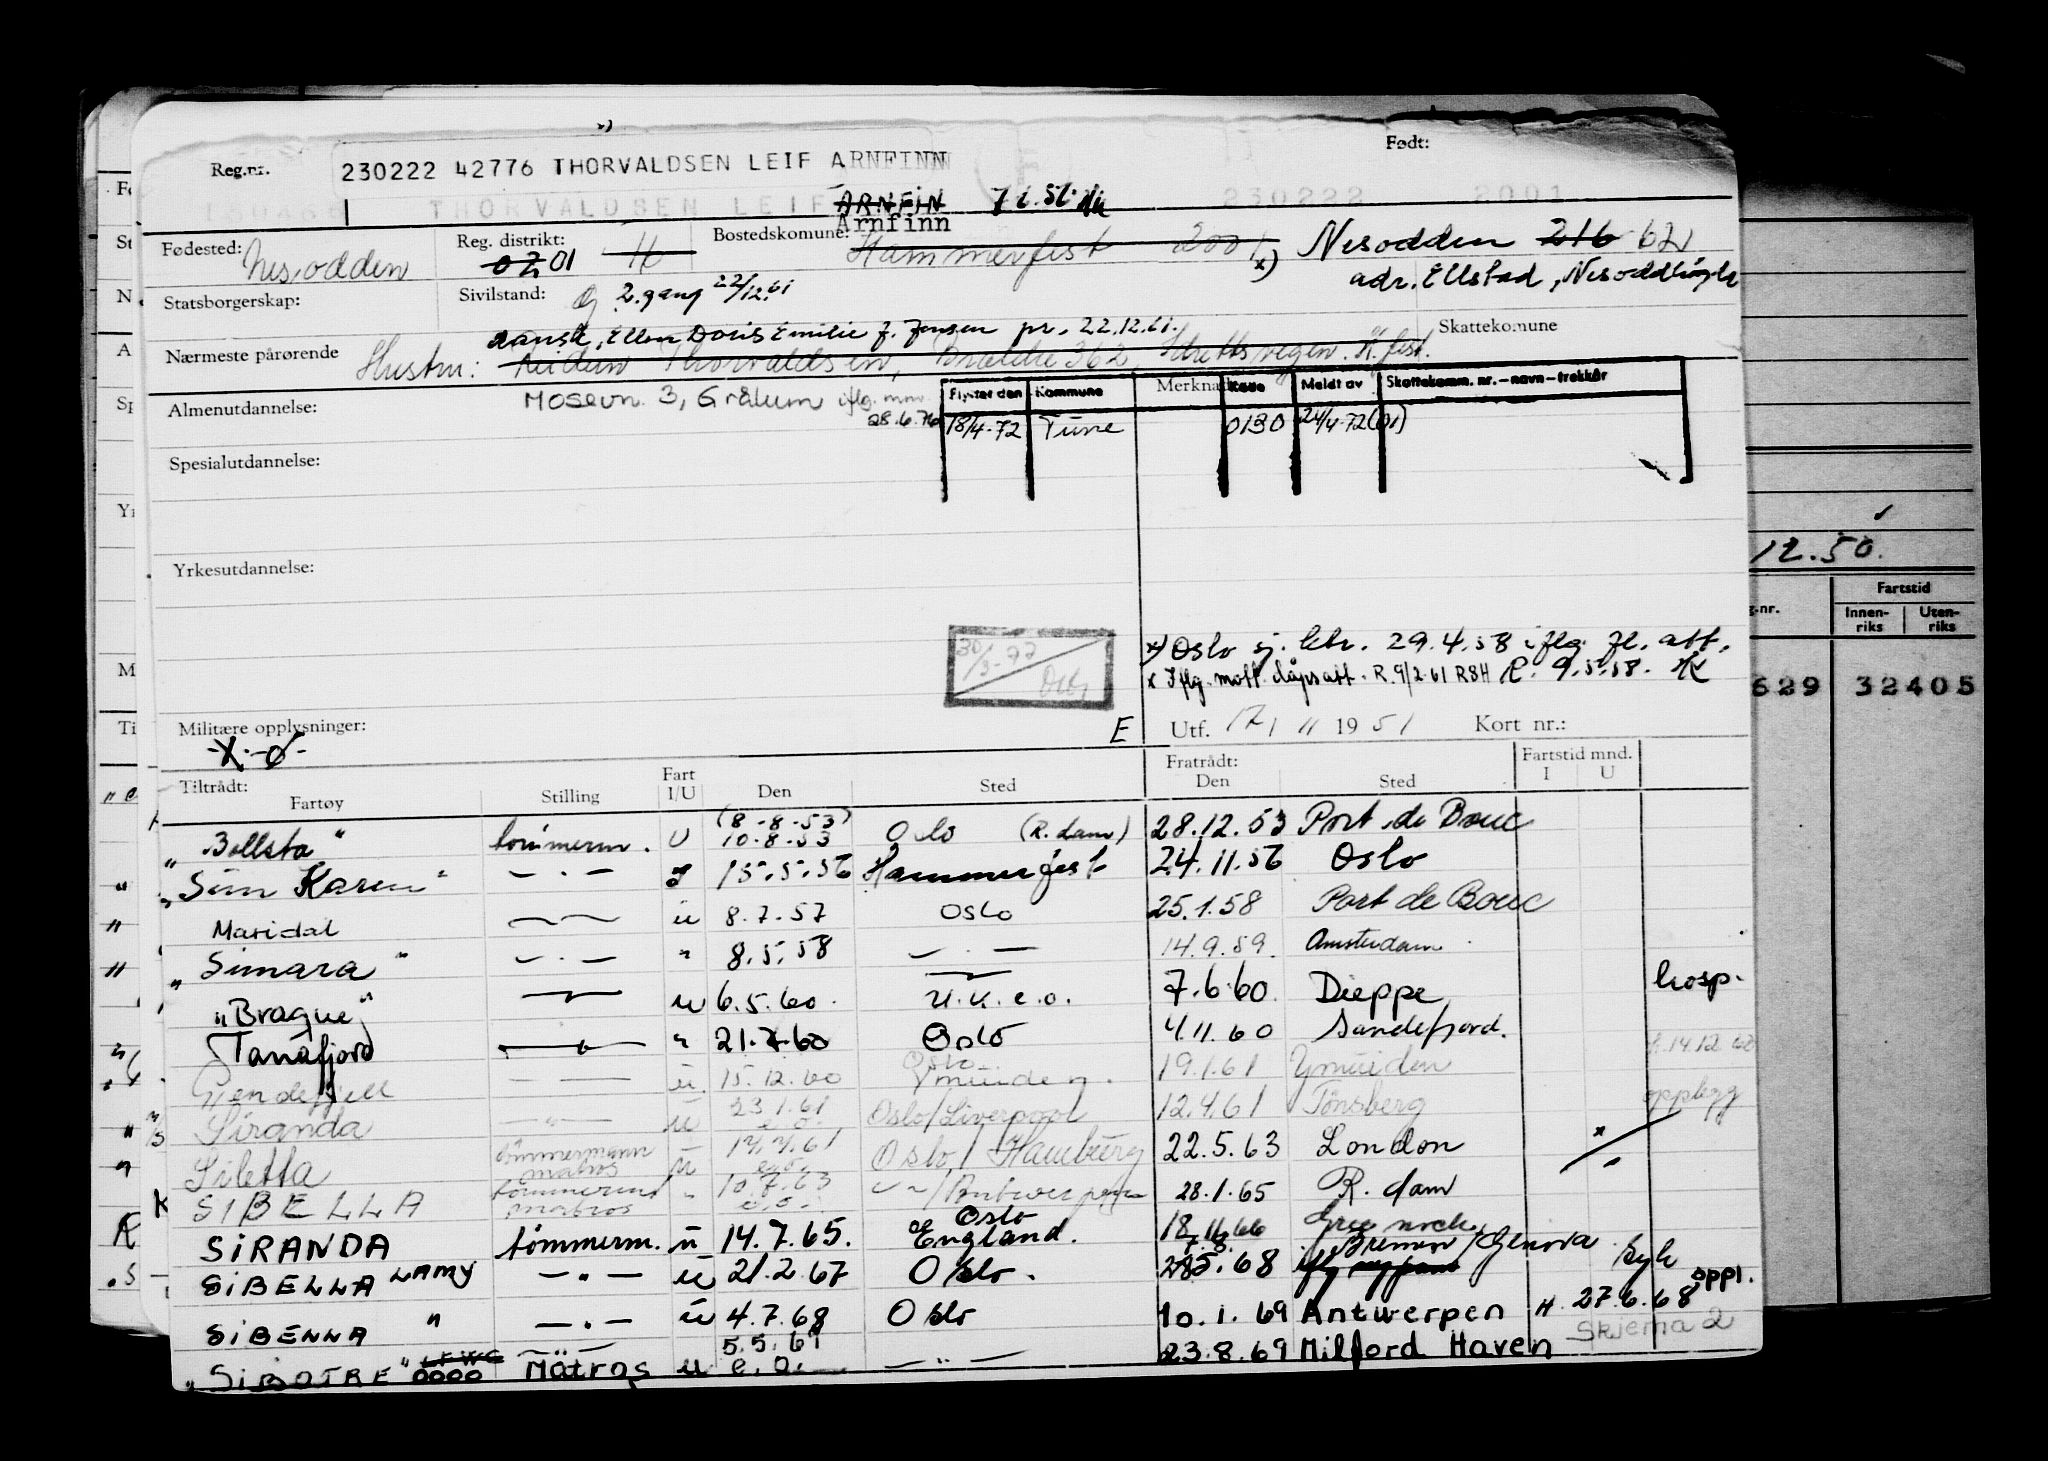 Reg.nr. 230222 42776 THORVALDSEN LEIF ARNFINN Født:
THORVALDSEN LEIF ARNFIN 230222 2001
Arnfinn
Fødested: Nesodden Reg. distrikt: 07 01 H Bostedskommune: Hammerfest 2001 x) Nesodden 216 62
adr. Ellstad, Nesoddtangen
Statsborgerskap: Sivilstand: g 2. gang 22/12.61
dansk, Ellen Doris Emilie f. Jensen pr. 22.12.61. Skattekomune
Nærmeste pårørende Hustru: Thorvaldsen, 362, H.fest.
Almenutdannelse: Mosevn. 3, Grålum iflg. mm. 28.6.76
Flyttet den Kommune Merknader Kode Meldt av Skattekomm. nr. - navn - trekkår
18/4-72 Tune 0130 24/4-72 (01)
Spesialutdannelse:
Yrkesutdannelse:
12.50.
g.nr. Fartstid
Innenriks Utenriks
629 32405
30/3-77
x) Oslo sj. ktr. 29.4.58 iflg. fl. att.
x Iflg. mott. dåpsatt. R. 9/2-61 RSH R. 9.5.58.
Militære opplysninger: E Utf. 17/11 1951 Kort nr.:
-X-Ø-
Tiltrådt: Fratrådt: Fartstid mnd.
Fartøy Stilling Fart I/U Den Sted Den Sted I U
"Bollsta" tømmerm. U (8-8-53) 10.8.53 Oslo (R.dam) 28.12.53 Port de Bouc
"Sun Karen" — . — 15.5.56 Hammerfest 24.11.56 Oslo
Maridal — u 8.7.57 Oslo 25.1.58 Port de Bouc
"Simara" — . — " 8.5.58 — . — 14.9.59. Amsterdam
"Brague" — u 6.5.60. u.k.e.o. 7.6.60. Dieppe hosp.
Tanafjord — " — " 21.7.60 Oslo 4.11.60 Sandefjord.
— — u 15.12.60 Oslo Ymuiden. 19.1.61 Ymuiden 14.12.60
Siranda — " — u 23.1.61 e.o. Oslo/Liverpool 12.4.61 Tønsberg opplegg
Siletta tømmermann matros u 14.4.61 e.o. Oslo/Hamburg 22.5.63 London
SIBELLA tømmerm. matros " 10.7.63 e.o. — " —/Antwerpen 28.1.65 R.dam
SIRANDA tømmerm. u 14.7.65. Oslo England. 18.11.66 Greenock
SIBELLA LAMY — " — u 21.2.67 Oslo. 28.5.68 Bremen/Genova syk
SIBELLA " — " — u 4.7.68 Oslo 10.1.69 Antwerpen H. 27.6.68 oppl.
"SIBOTRE" OOOO Matros u 5.5.69 e.o. — " — 23.8.69 Milford Haven Skjema 2